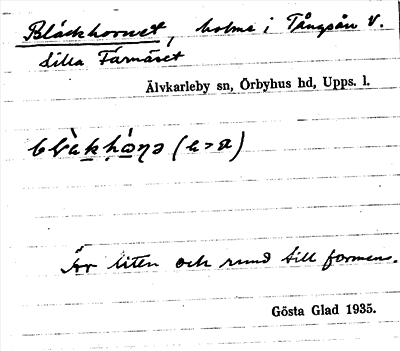 Bläckhornet, holme i Tångsån V.
Lilla Tärnäset
Älvkarleby sn, Örbyhus hd, Upps. l.
Är liten och rund till formen.
Gösta Glad 1935.